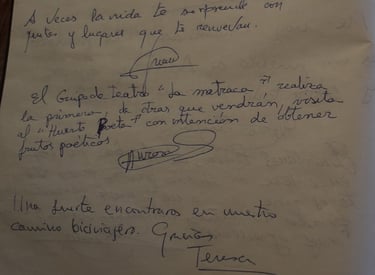 A veces la vida te sorprende con
y lugares que te renuevan.
El Grupo de teatro "La matraca" realiza
la primera, de otras que vendrán, visita
al "Huerto Poeta" con intención de obtener
frutos poéticos
Aurora
Una suerte encontraros en nuestro
camino biciviajero. Gracias
Teresa